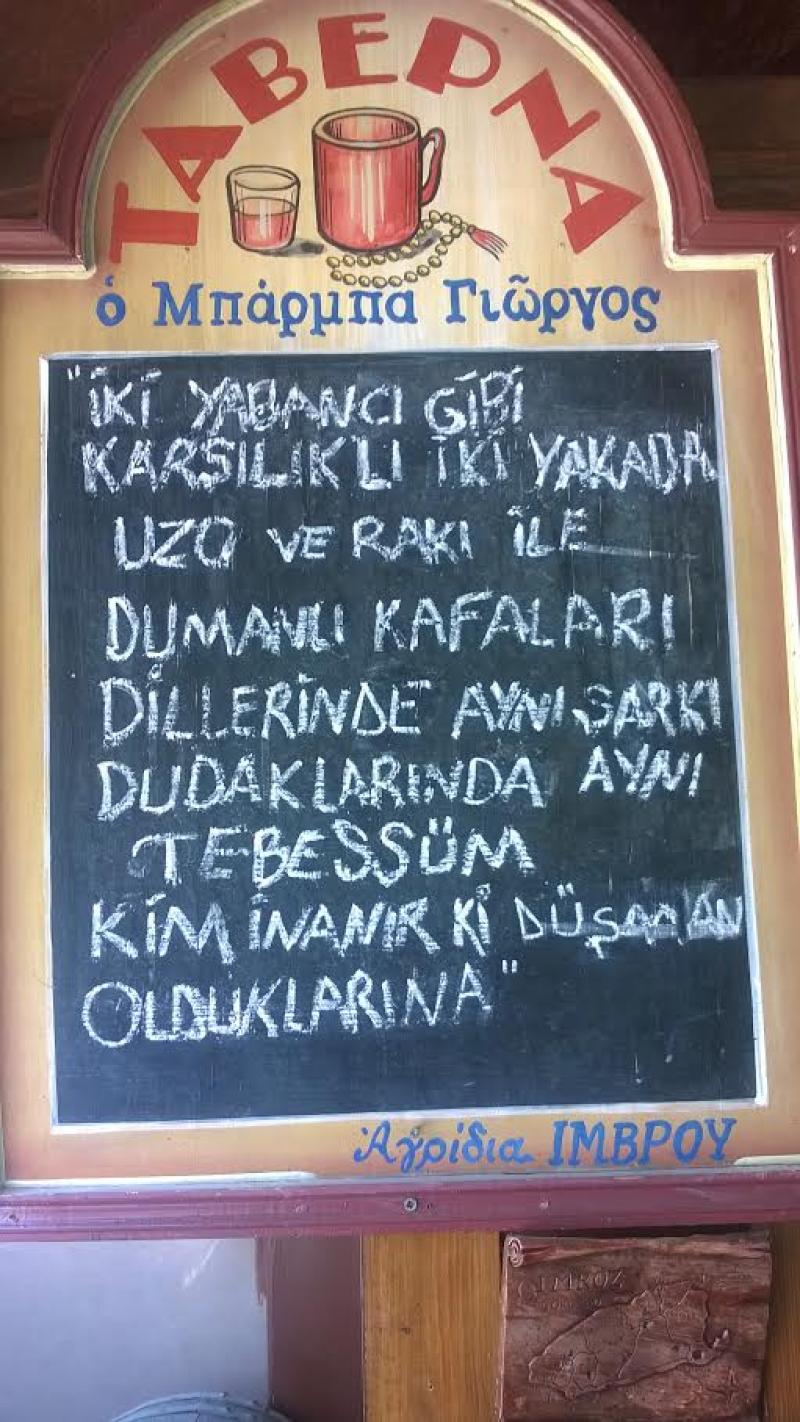 ΤΑΒΕΡΝΑ
ὁ Μπάρμπα Γιῶργος
"İKİ YABANCI GİBİ
KARSILIKLI İKİ YAKADA
UZO VE RAKI İLE
DUMANLI KAFALARI
DİLLERİNDE AYNI ŞARKI
DUDAKLARINDA AYNI
TEBESSÜM
KİM İNANIR Kİ DÜŞMAN
OLDUKLARINA"
Ἀγρίδια ΙΜΒΡΟΥ
GIMROZ